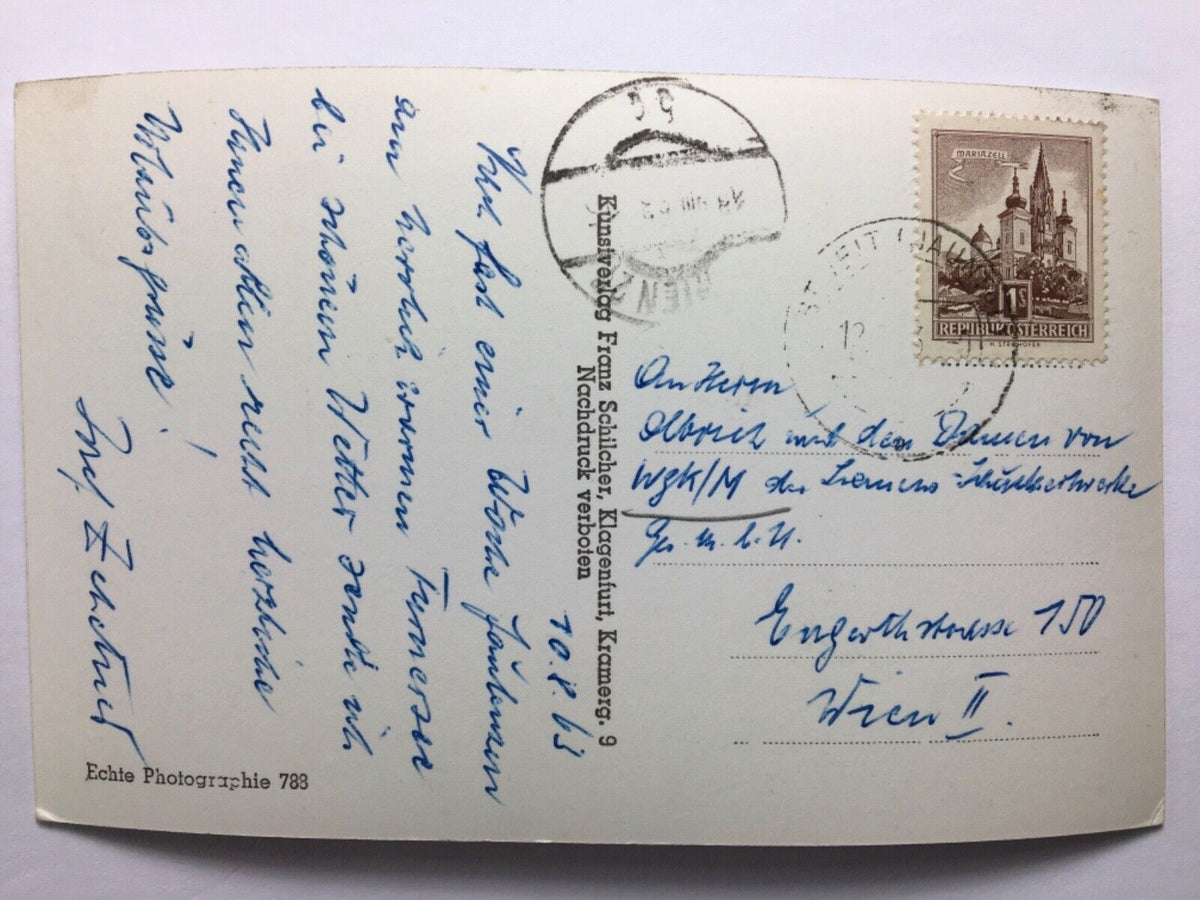 10.8.63
Nach fast einer Woche faulenzen
am herrlich warmen Turnersee
bei schönem Wetter sende ich
Ihnen allen recht herzliche
Urlaubsgrüsse!
Josef Zehetner
Echte Photographie 788
Kunstverlag Franz Schilcher, Klagenfurt, Kramerg. 9
Nachdruck verboten
MARIAZELL
1S
REPUBLIK ÖSTERREICH
ST. VEIT
12
WIEN
An Herrn
Olbrich und den Damen von
WGK/M der Siemens-Schuckertwerke
Ges.m.b.H.
Engerthstrasse 150
Wien II.